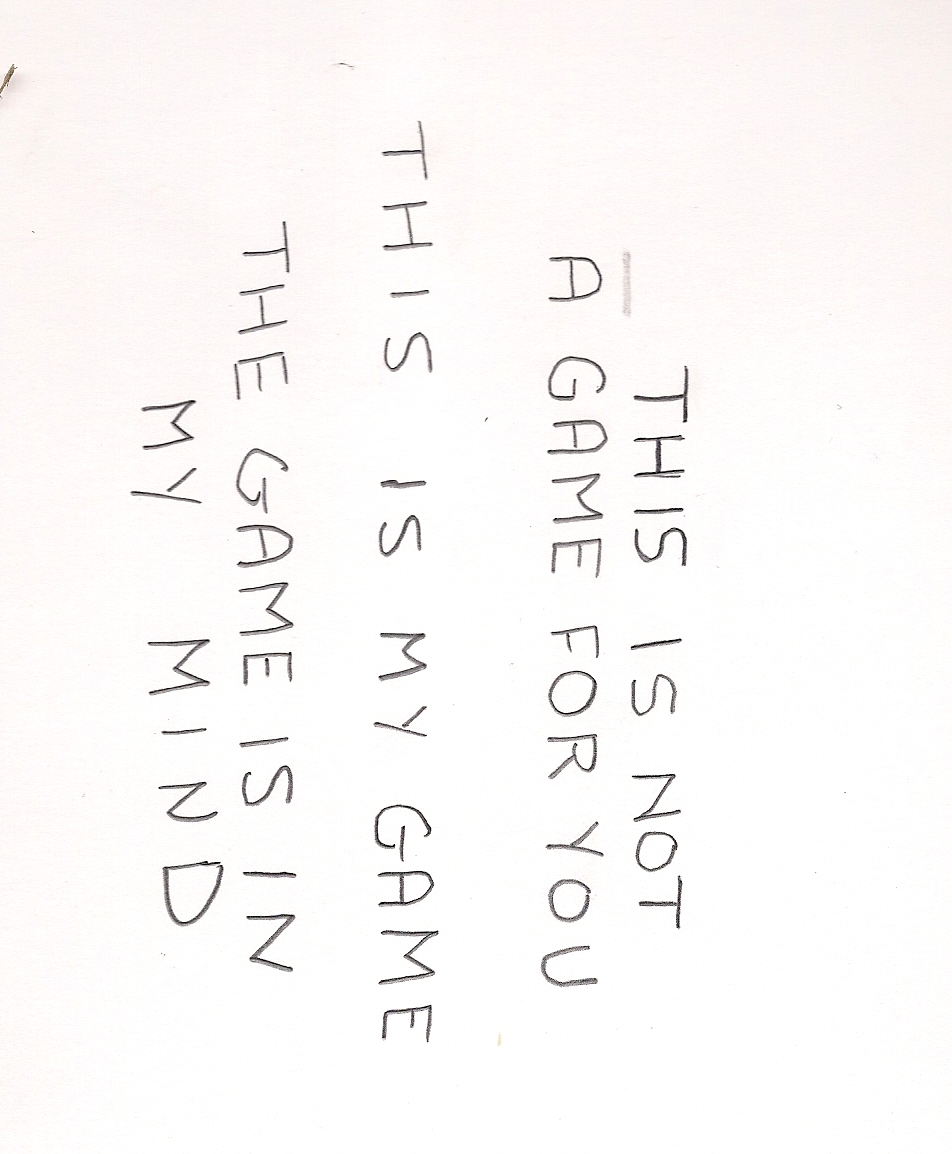 THIS IS NOT
A GAME FOR YOU
THIS IS MY GAME
THE GAME IS IN
MY MIND